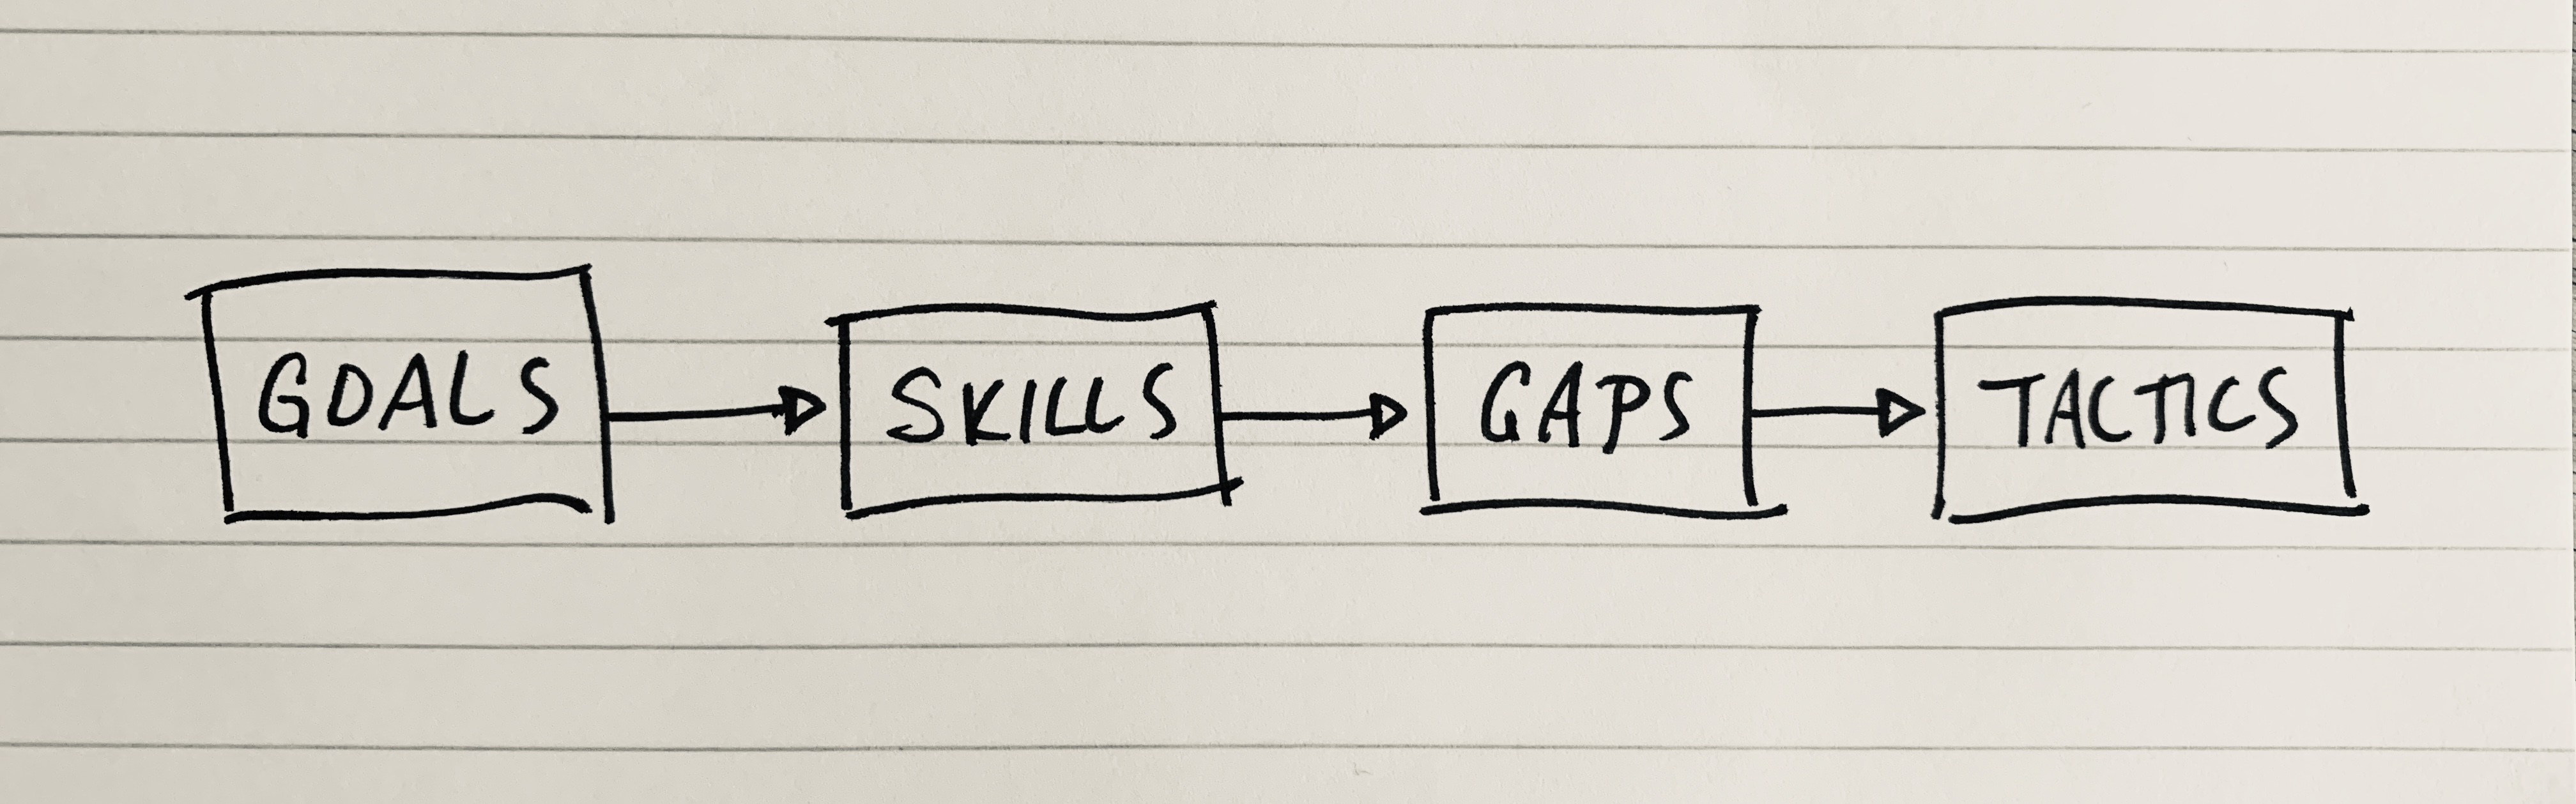 GOALS SKILLS GAPS TACTICS